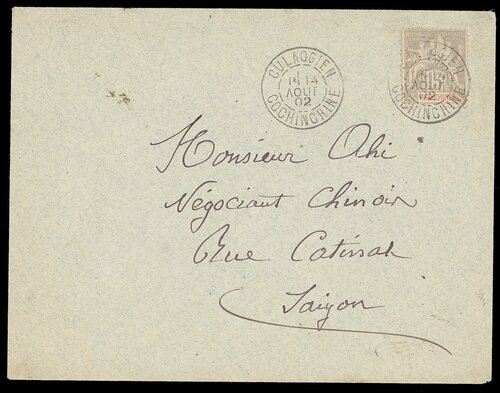 CULAOGIEN
14
AOUT
02
COCHINCHINE
14
AOUT
02
COCHINCHINE
15
Monsieur Ahi
Négociant Chinois
Rue Catinat
Saigon